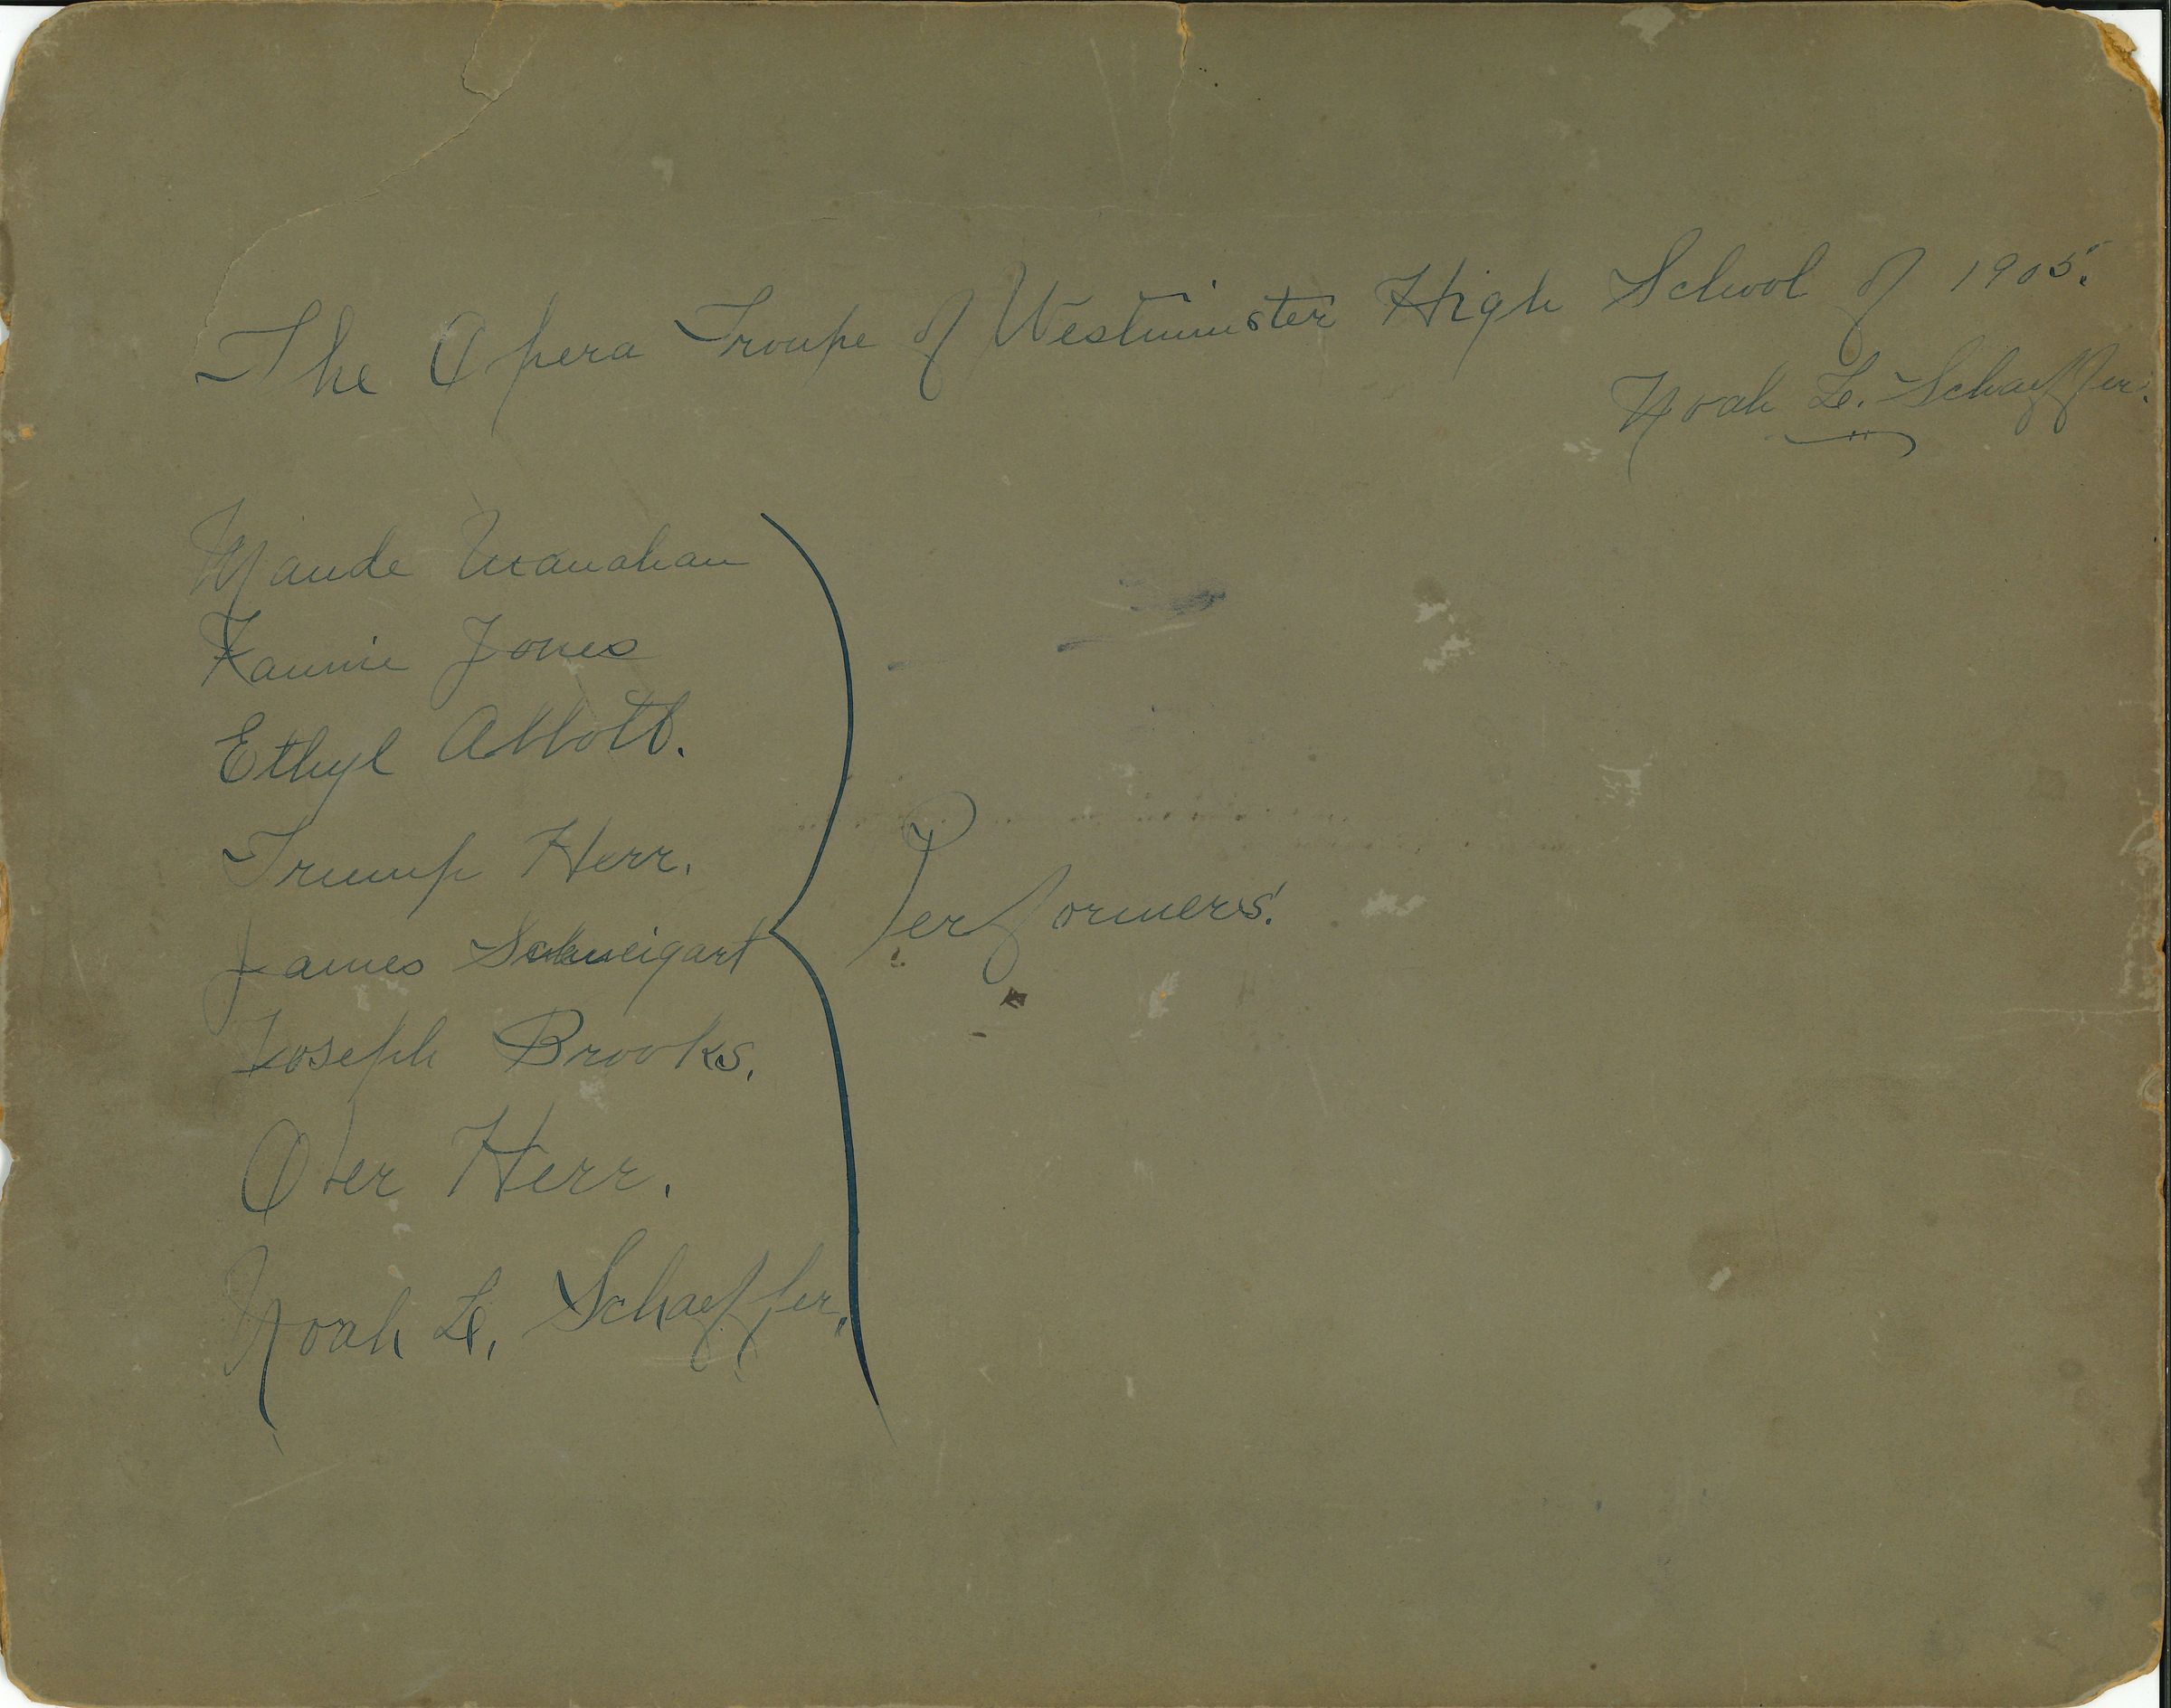 The Opera Troupe of Westminster High School of 1905.
Noah L. Schaeffer.
Maude Manahan
Fannie Jones
Ethyl Abbott.
Trump Herr.
James
Joseph Brooks.
Ober Herr.
Noah L. Schaeffer.
Performers.